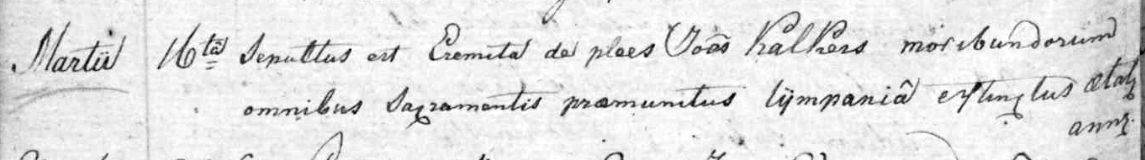 Martii 16tâ Sepultus est Eremita de plees Joẽs Kalkers moribundorum
omnibus Sacramentis præmunitus tÿmpaniâ extinctus ætatis
annũ